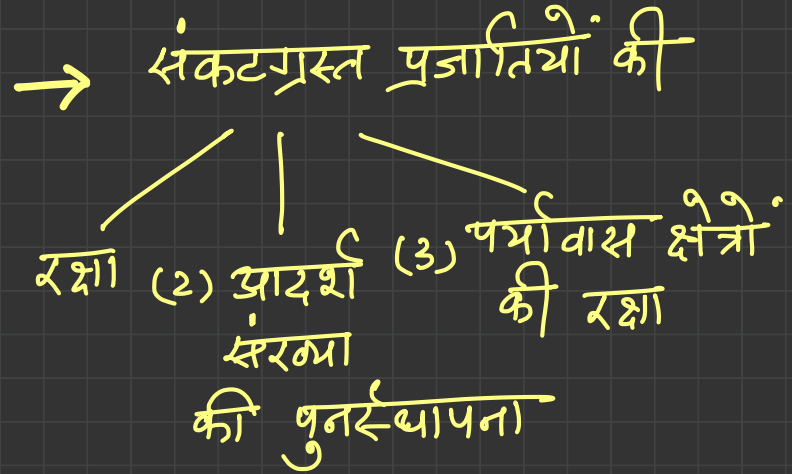 → संकटग्रस्त प्रजातियों की
रक्षा
(2) आदर्श
संख्या
की पुनर्स्थापना
(3) पर्यावास क्षेत्रों
की रक्षा